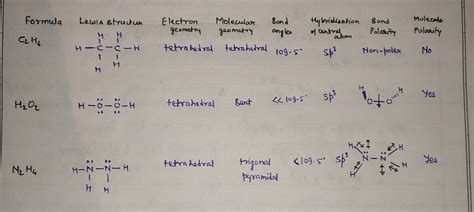 Formula Lewis Structure Electron geometry Molecular geometry Bond angles Hybridisation of central atom Bond Polarity Molecule Polarity
C2H6 H-C-C-H H H H H tetrahedral tetrahedral 109.5° Sp³ Non-polar No
H2O2 H-Ö-Ö-H tetrahedral Bent <<109.5° Sp³ H O O H Yes
N2H4 H-N-N-H H H tetrahedral trigonal pyramidal <109.5° Sp³ H H N-N H H Yes